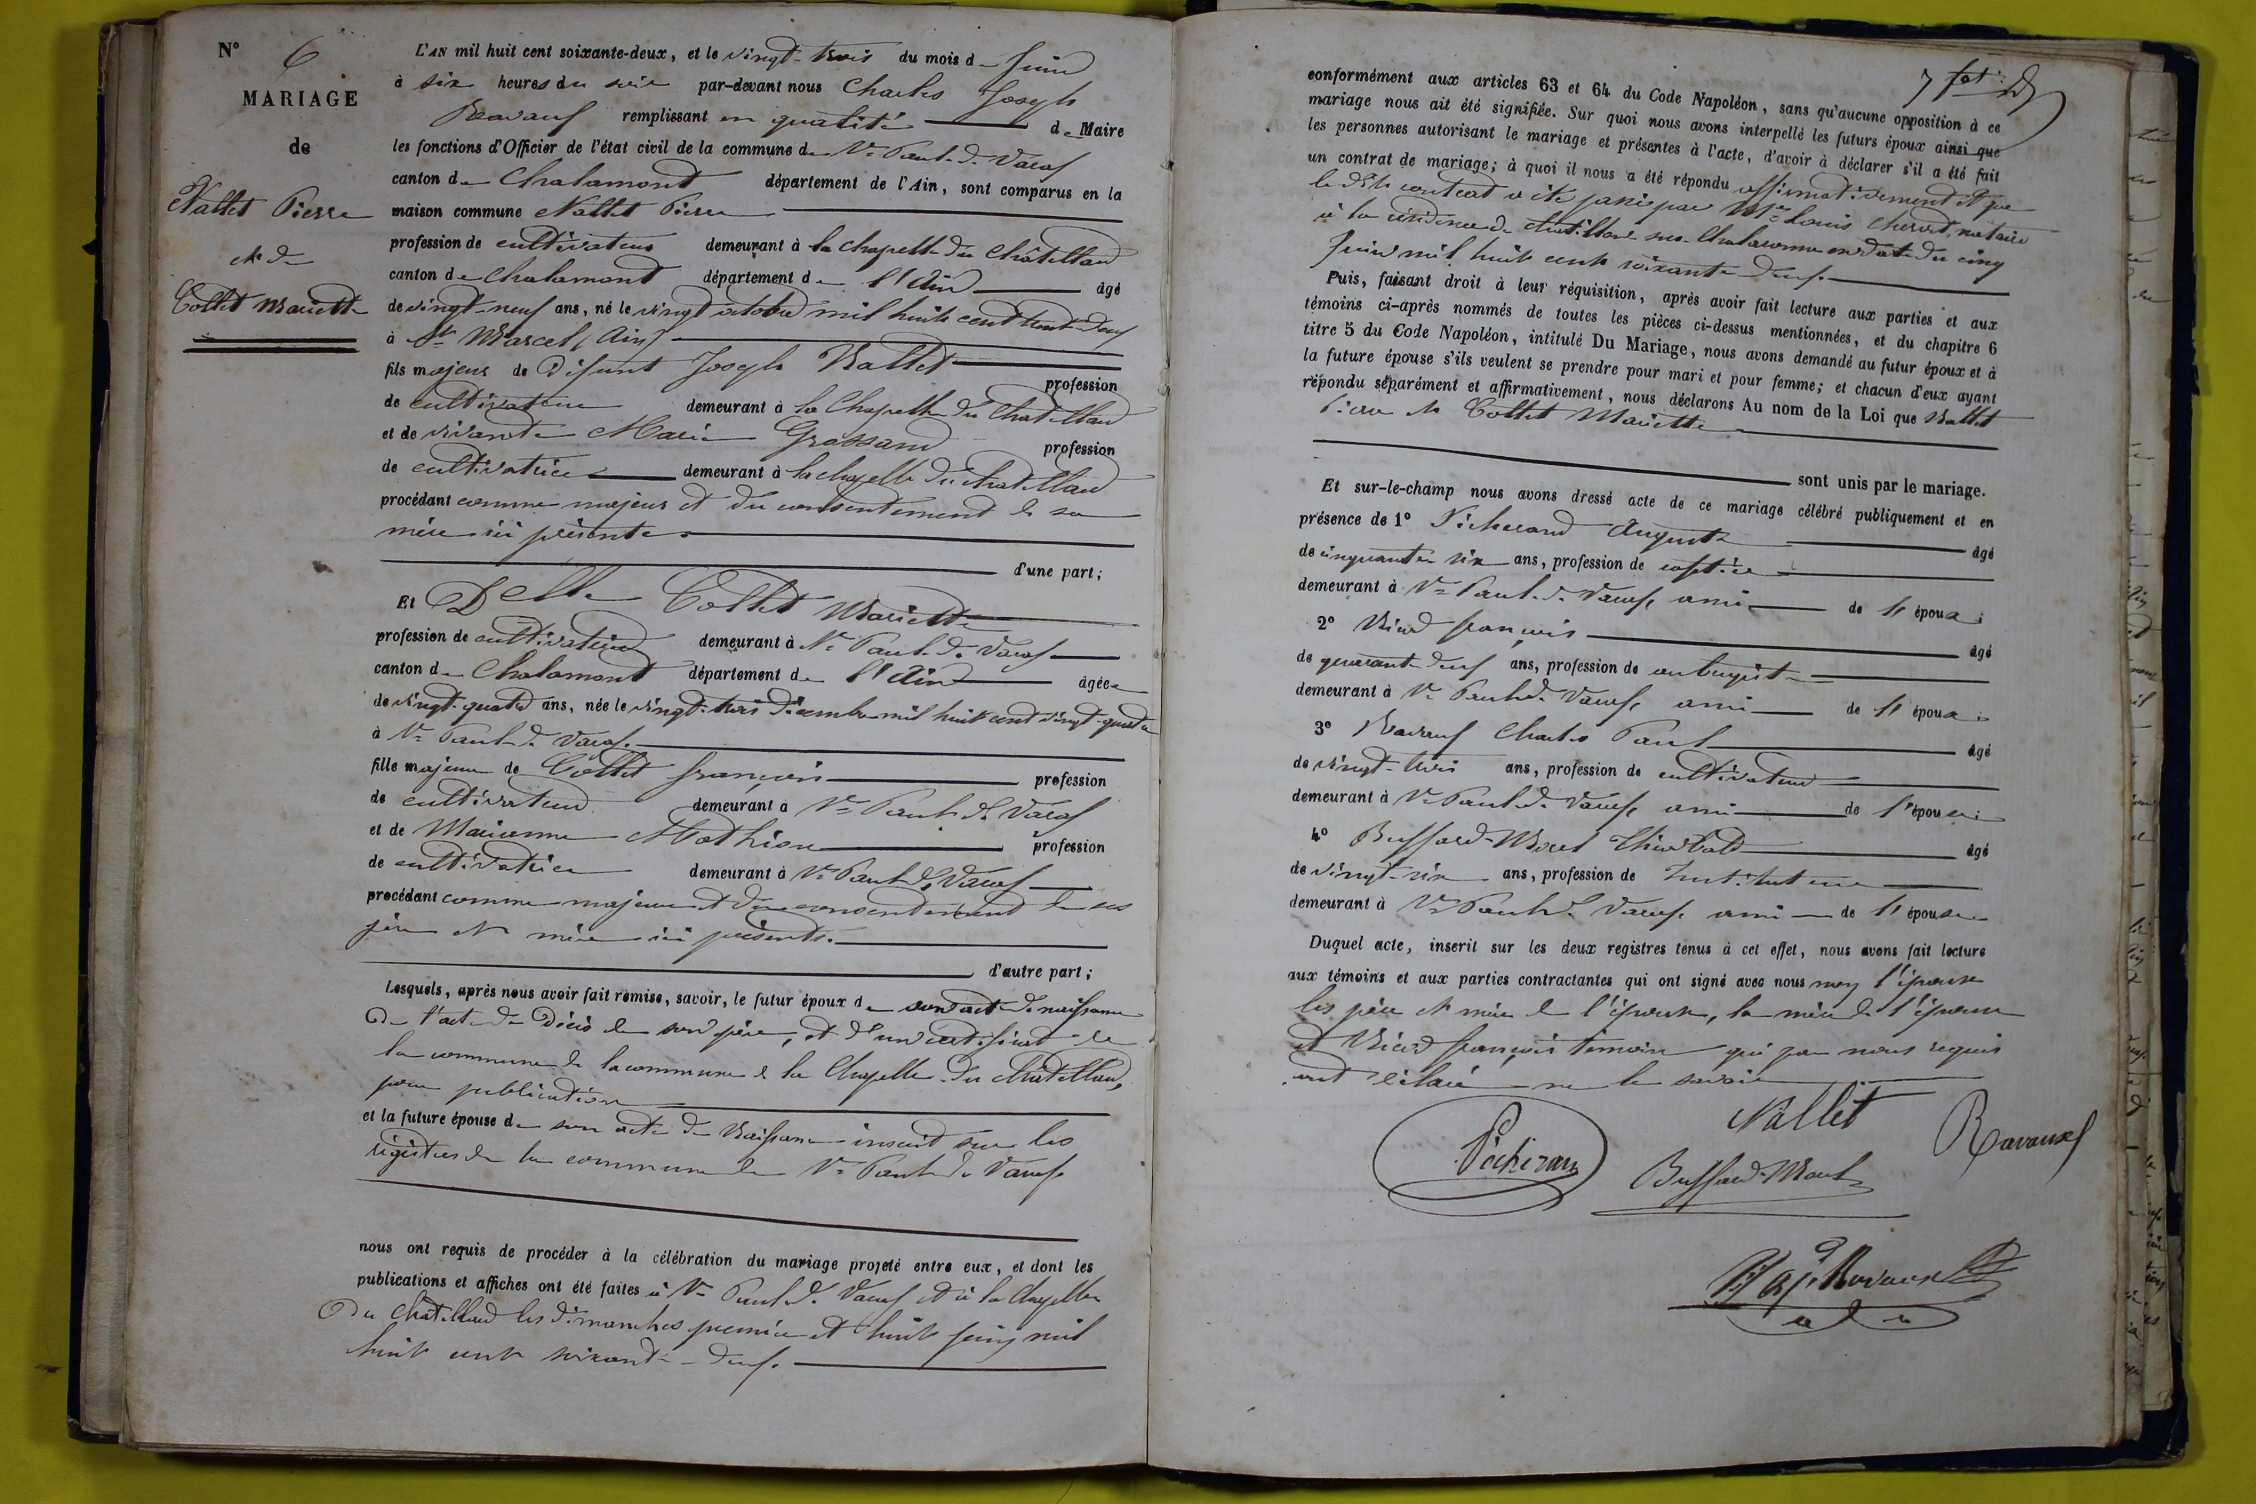 N° 6
MARIAGE
de
Nallet Pierre
et de
Collet Mariette
L'AN mil huit cent soixante-deux, et le vingt-trois du mois de Juin
à six heures du soir par-devant nous Charles Joseph
Ravaux remplissant en qualité de Maire
les fonctions d'Officier de l'état civil de la commune de St Paul de Varax
canton de Chalamont département de l'Ain, sont comparus en la
maison commune Nallet Pierre
profession de cultivateur demeurant à la Chapelle du Châtellard
canton de Chalamont département de l'Ain âgé
de vingt-neuf ans, né le vingt octobre mil huit cent trente deux
à St Marcel (Ain)
fils majeur de défunt Joseph Nallet profession
de cultivateur demeurant à la Chapelle du Chatellard
et de vivante Marie Grossard profession
de cultivatrice demeurant à la chapelle du chatellard
procédant comme majeur et du consentement de sa
mère ici présente
d'une part;
Et Delle Collet Mariette
profession de cultivatrice demeurant à St Paul de Varax
canton de Chalamont département de l'Ain âgée
de vingt-quatre ans, née le vingt-trois décembre mil huit cent vingt-quatre
à St Paul de Varax
fille majeure de Collet françois profession
de cultivateur demeurant à St Paul de Varax
et de Marianne Mathieu profession
de cultivatrice demeurant à St Paul de Varax
procédant comme majeure et du consentement de ses
père et mère ici présents.
d'autre part;
Lesquels, après nous avoir fait remise, savoir, le futur époux de son acte de naissance
De l'acte de décès de son père, et d'un certificat de
la commune de la commune de la Chapelle du Châtellard,
pour publication
et la future épouse de son acte de Naissance inscrit sur les
registres de la commune de St Paul de Varax
nous ont requis de procéder à la célébration du mariage projeté entre eux, et dont les
publications et affiches ont été faites à St Paul de Varax et à la Chapelle
du Châtellard les dimanches premier et huit juin mil
huit cent soixante-deux.
7
conformément aux articles 63 et 64 du Code Napoléon, sans qu'aucune opposition à ce
mariage nous ait été signifiée. Sur quoi nous avons interpellé les futurs époux ainsi que
les personnes autorisant le mariage et présentes à l'acte, d'avoir à déclarer s'il a été fait
un contrat de mariage; à quoi il nous a été répondu affirmativement et que
le dit contrat a été passé par Me Louis notaire
à la résidence de chatillon sur Chalaronne en date du cinq
Juin mil huit cent soixante deux
Puis, faisant droit à leur réquisition, après avoir fait lecture aux parties et aux
témoins ci-après nommés de toutes les pièces ci-dessus mentionnées, et du chapitre 6
titre 5 du Code Napoléon, intitulé Du Mariage, nous avons demandé au futur époux et à
la future épouse s'ils veulent se prendre pour mari et pour femme; et chacun d'eux ayant
répondu séparément et affirmativement, nous déclarons Au nom de la Loi que Nallet
Pierre et Collet Mariette
sont unis par le mariage.
Et sur-le-champ nous avons dressé acte de ce mariage célébré publiquement et en
présence de 1° Picherand Auguste âgé
de cinquante six ans, profession de
demeurant à St Paul de Varax, ami de l'époux
2° françois âgé
de quarante deux ans, profession de aubergiste
demeurant à St Paul de Varax, ami de l'époux
3° Ravaux Charles Paul âgé
de vingt-trois ans, profession de cultivateur
demeurant à St Paul de Varax, ami de l'épouse
4° Buffard-Morel Thiébald âgé
de vingt-six ans, profession de Instituteur
demeurant à St Paul de Varax, ami de l'épouse
Duquel acte, inscrit sur les deux registres tenus à cet effet, nous avons fait lecture
aux témoins et aux parties contractantes qui ont signé avec nous non l'épouse
les père et mère de l'épouse, la mère de l'époux
et françois témoin qui par nous requis
ont déclaré ne le savoir
Nallet
Picheran
Buffard-Morel
Ravaux
Ravaux